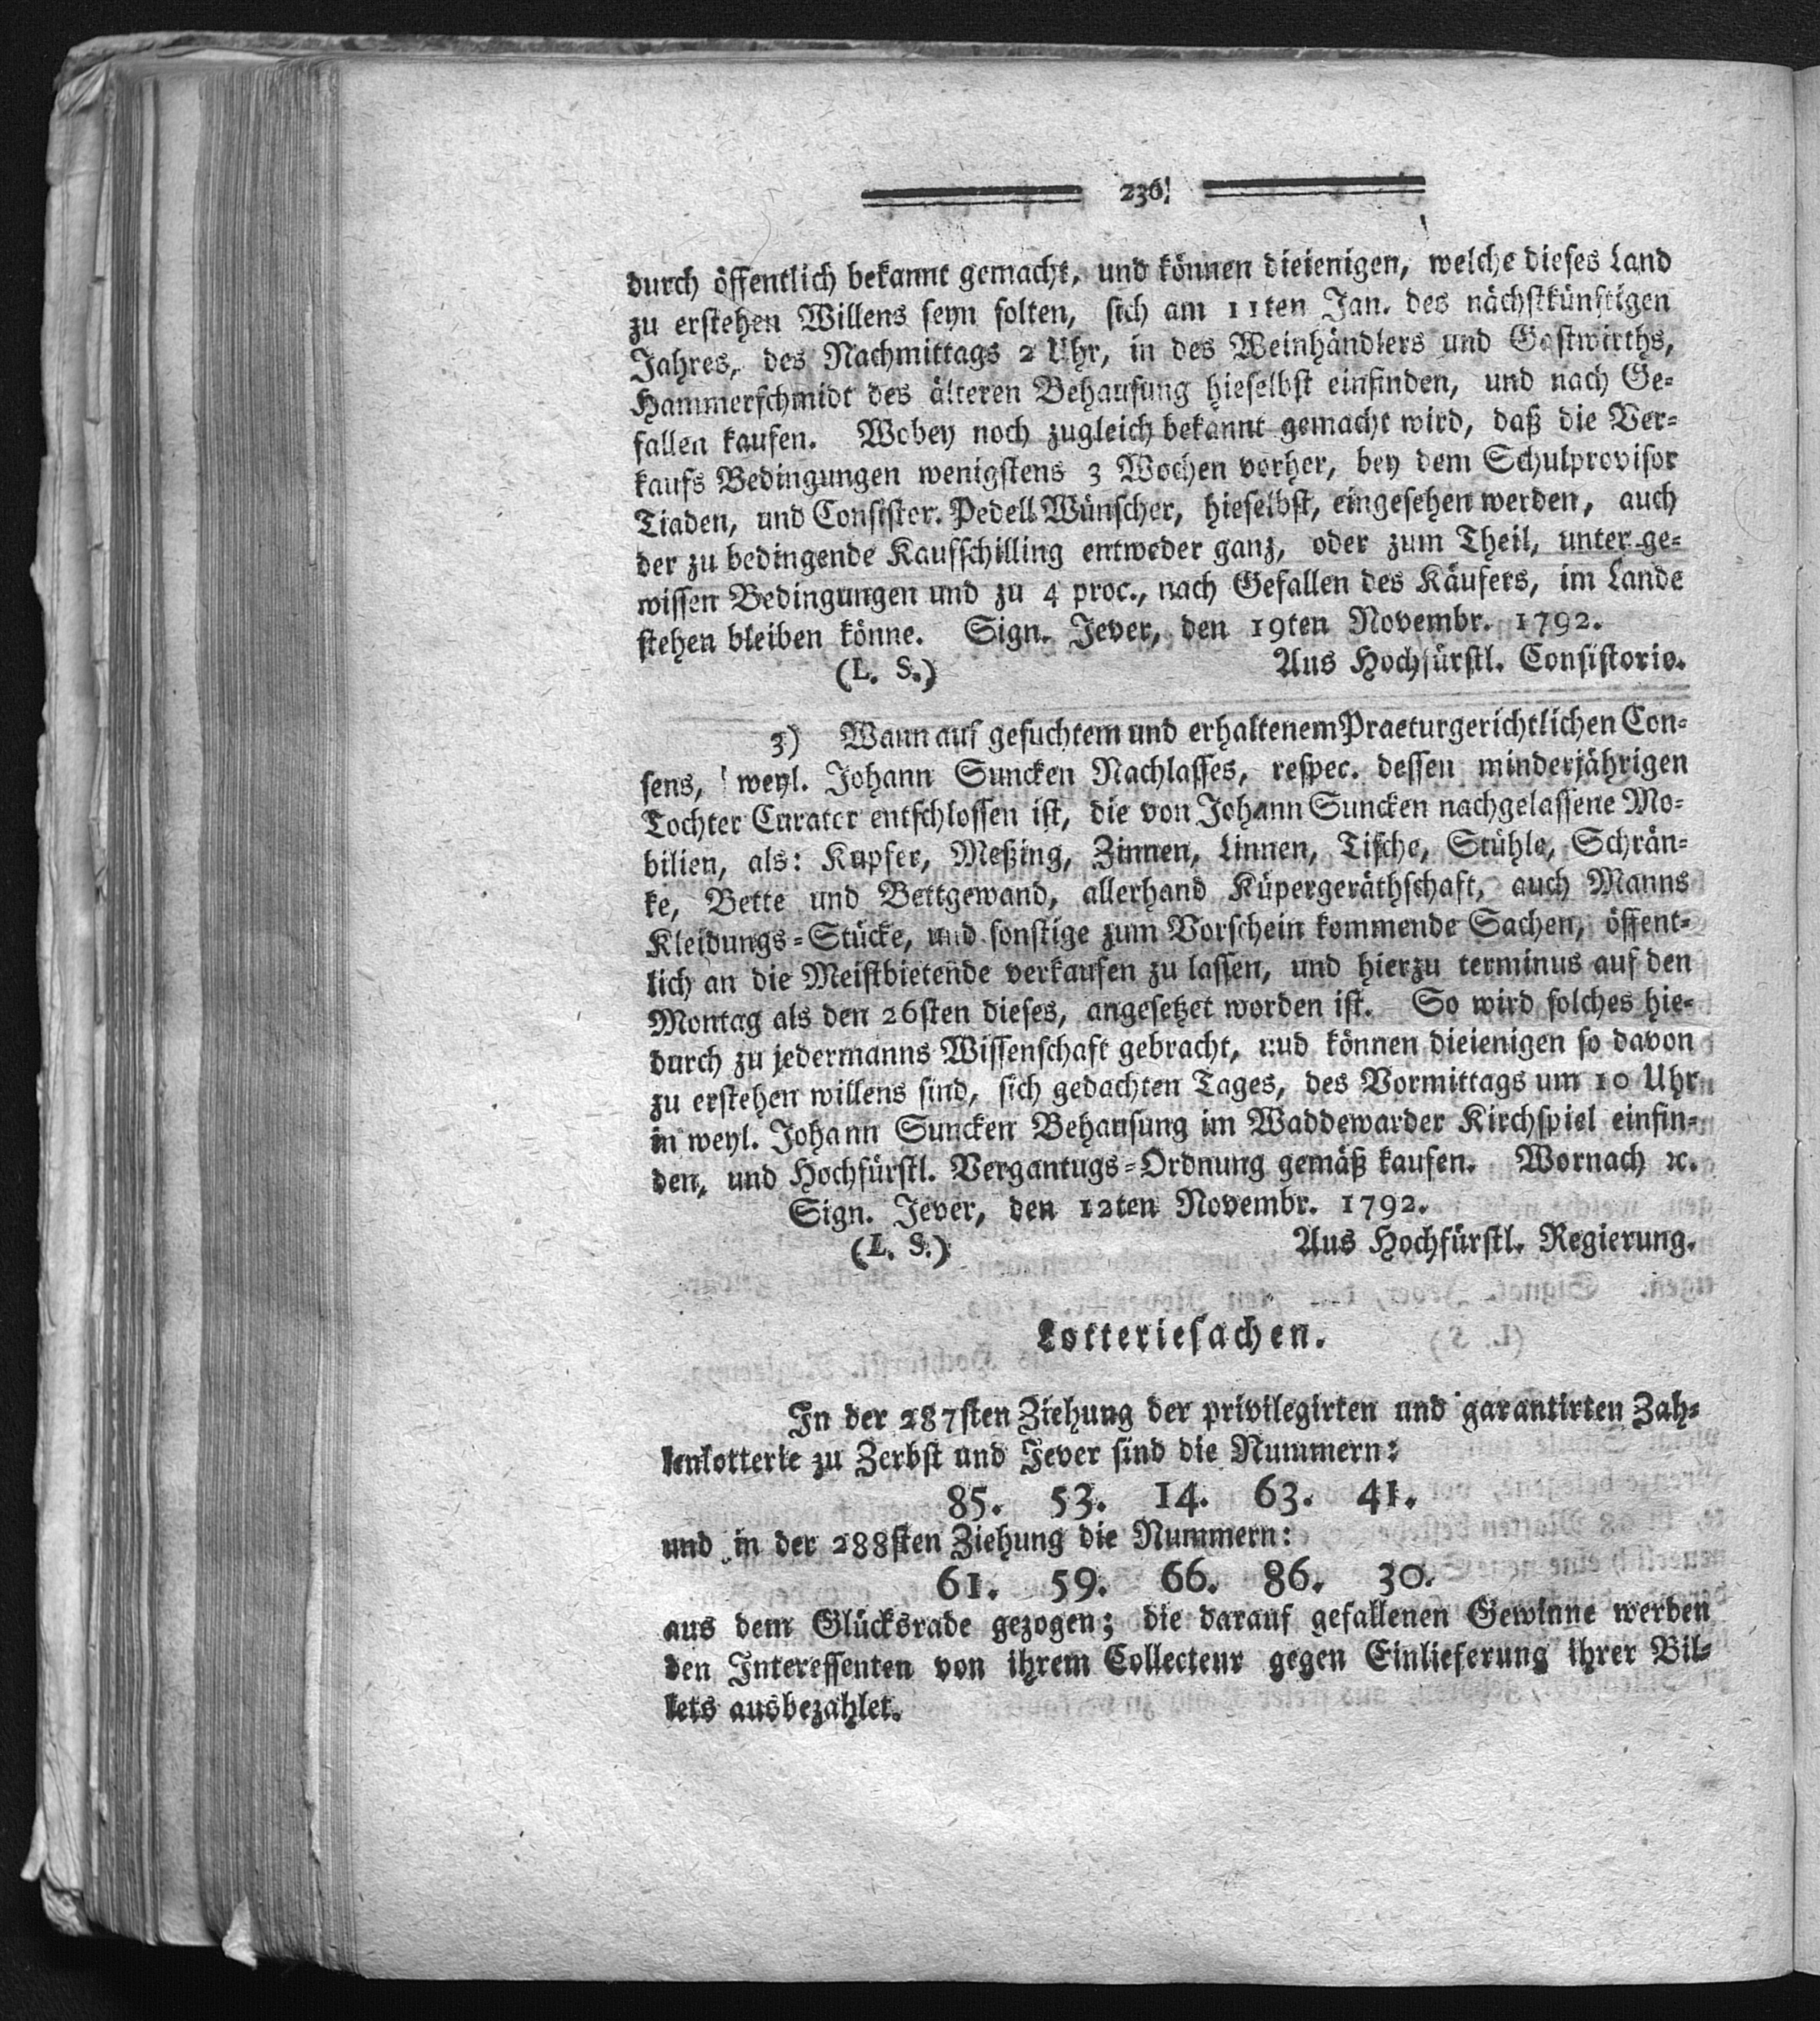 236.
durch öffentlich bekannt gemacht, und können dieienigen, welche dieses Land
zu erstehen Willens seyn solten, sich am 11ten Jan. des nächstkünftigen
Jahres, des Nachmittags 2 Uhr, in des Weinhändlers und Gastwirths,
Hammerschmidt des älteren Behausung hieselbst einfinden, und nach Ge-
fallen kaufen. Wobey noch zugleich bekannt gemacht wird, daß die Ver-
kaufs Bedingungen wenigstens 3 Wochen vorher, bey dem Schulprovisor
Tiaden, und Consistor. Pedell Wünscher, hieselbst, eingesehen werden, auch
der zu bedingende Kaufschilling entweder ganz, oder zum Theil, unter ge-
wissen Bedingungen und zu 4 proc., nach Gefallen des Käufers, im Lande
stehen bleiben könne. Sign. Jever, den 19ten Novembr. 1792.
(L. S.) Aus Hochfürstl. Consistorio.
3) Wann auf gesuchtem und erhaltenem Praeturgerichtlichen Con-
sens, weyl. Johann Suncken Nachlasses, respec. dessen minderjährigen
Tochter Curator entschlossen ist, die von Johann Suncken nachgelassene Mo-
bilien, als: Kupfer, Meßing, Zinnen, Linnen, Tische, Stühle, Schrän-
ke, Bette und Bettgewand, allerhand Küpergeräthschaft, auch Manns
Kleidungs-Stücke, und sonstige zum Vorschein kommende Sachen, öffent-
lich an die Meistbietende verkaufen zu lassen, und hierzu terminus auf den
Montag als den 26sten dieses, angesetzet worden ist. So wird solches hie-
durch zu jedermanns Wissenschaft gebracht, und können dieienigen so davon
zu erstehen willens sind, sich gedachten Tages, des Vormittags um 10 Uhr
in weyl. Johann Suncken Behausung im Waddewarder Kirchspiel einfin-
den, und Hochfürstl. Vergantugs-Ordnung gemäß kaufen. Wornach ꝛc.
Sign. Jever, den 12ten Novembr. 1792.
(L. S.) Aus Hochfürstl. Regierung.
Lotteriesachen.
In der 287sten Ziehung der privilegirten und garantirten Zah-
lenlotterie zu Zerbst und Jever sind die Nummern:
85. 53. 14. 63. 41.
und in der 288sten Ziehung die Nummern:
61. 59. 66. 86. 30.
aus dem Glücksrade gezogen; die darauf gefallenen Gewinne werden
den Interessenten von ihrem Collecteur gegen Einlieferung ihrer Bil-
lets ausbezahlet.